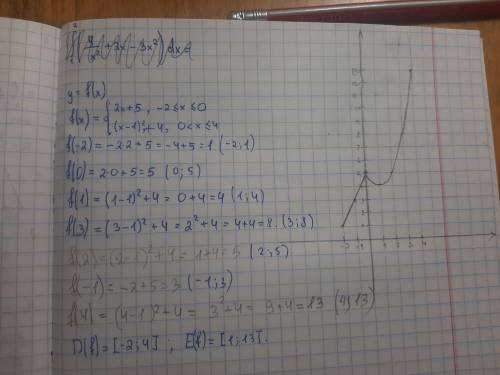 y = f(x)
f(x) = { 2x+5, -2≤x≤0
(x-1)²+4, 0<x≤4
f(-2) = -2·2+5 = -4+5 = 1 (-2;1)
f(0) = 2·0+5 = 5 (0;5)
f(1) = (1-1)²+4 = 0+4 = 4 (1;4)
f(3) = (3-1)²+4 = 2²+4 = 4+4 = 8. (3;8)
f(2) = (2-1)²+4 = 1+4 = 5 (2;5)
f(-1) = -2+5 = 3 (-1;3)
f(4) = (4-1)²+4 = 3²+4 = 9+4 = 13 (4;13)
D(f) = [-2;4] ; E(f) = [1;13].